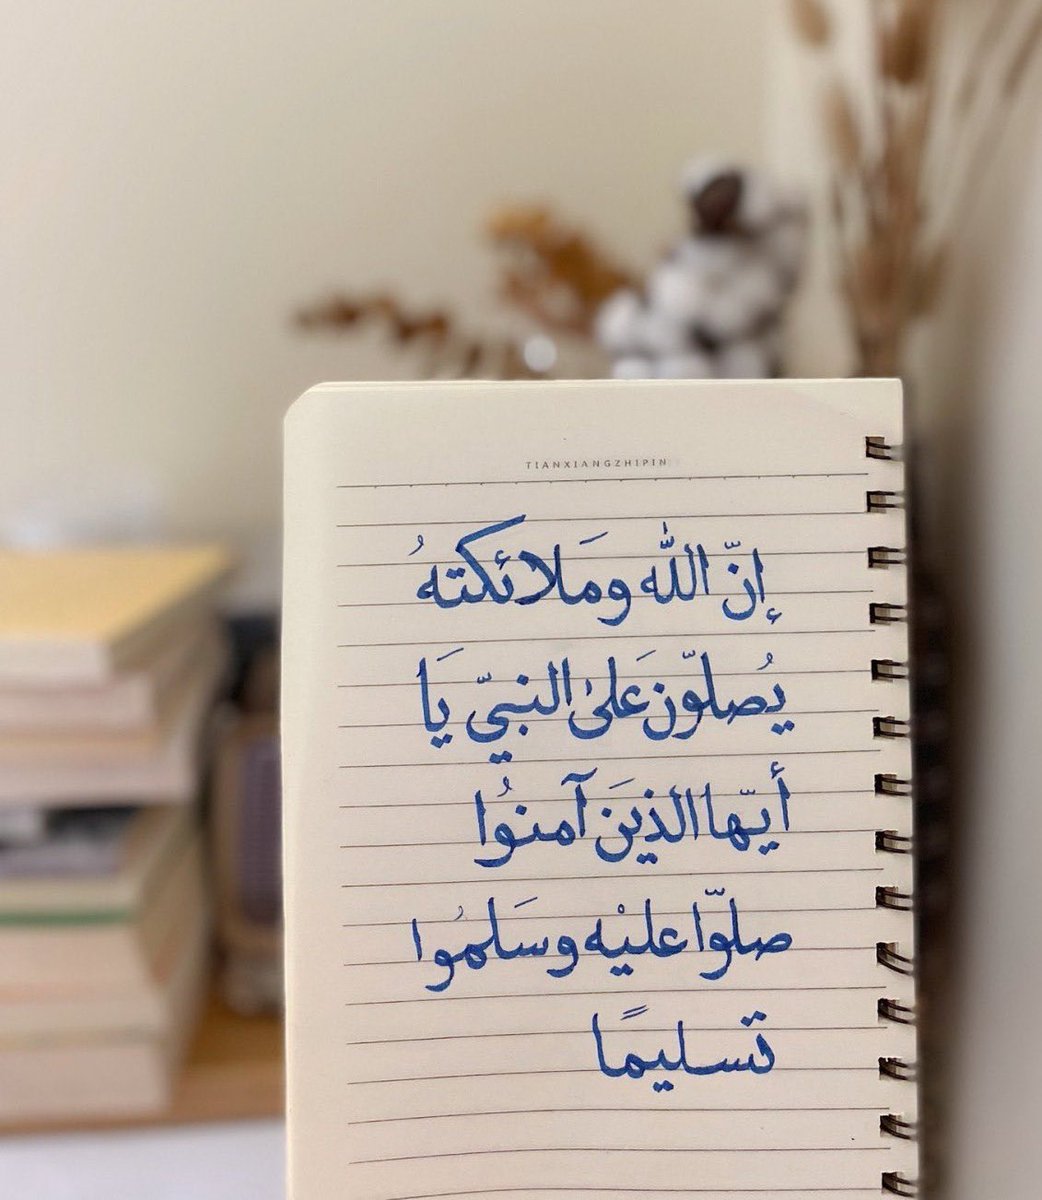 TIANXIANGZHIPIN
إنّ الله ومَلائكتهُ
يُصلّون عَلىٰ النبيّ يَا
أيّها الذينَ آمنُوا
صلّوا عليْه وسَلمُوا
تسليمًا